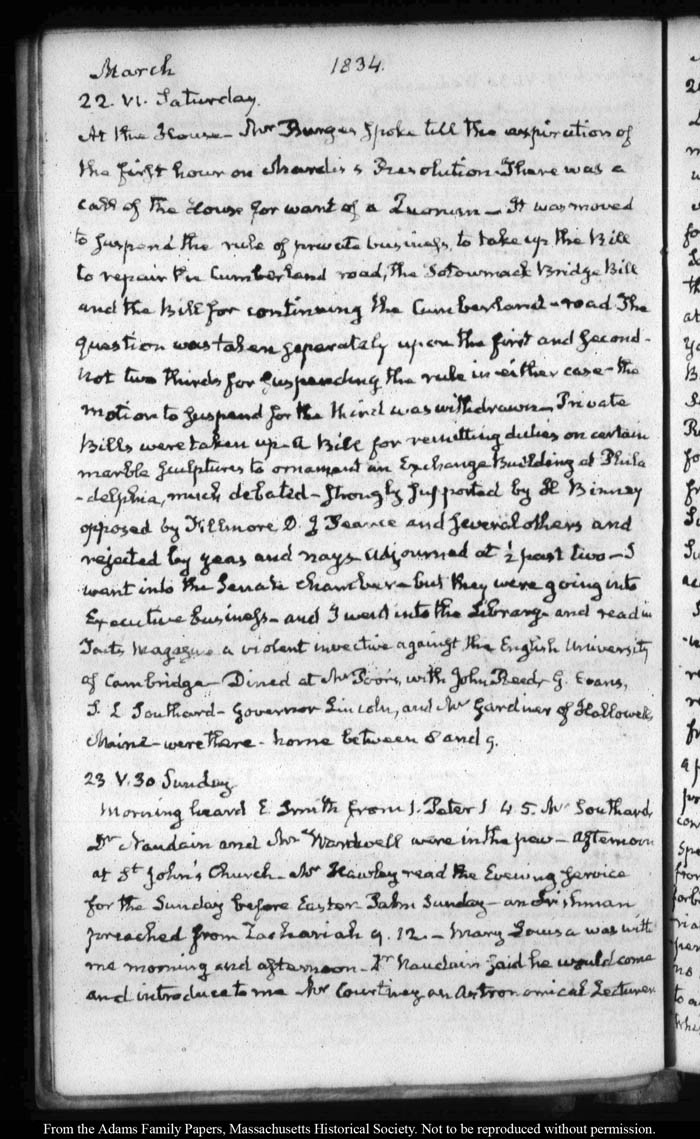 March 1834.
22. VI. Saturday.
At the House – Mr Burges spoke till the expiration of
the first hour on Mardis's Resolution. There was a
call of the House for want of a Quorum – It was moved
to suspend the rule of private business, to take up the Bill
to repair the Cumberland road, the Potowmack Bridge Bill
and the Bill for continuing the Cumberland-road The
question was taken separately upon the first and second –
not two thirds for suspending the rule in either case – the
motion to suspend for the third was withdrawn – Private
Bills were taken up – A Bill for remitting duties on certain
marble sculptures to ornament an Exchange Building at Phila
-delphia, much debated – strongly supported by H Binney
opposed by Fillmore D. J Pearce and several others and
rejected by yeas and nays – adjourned at ½ past two – I
went into the Senate chamber – but they were going into
Executive business – and I went into the Library – and read in
Taits Magazine a violent invective against the English University
of Cambridge – Dined at Mr Poor's, with John Reed, G. Evans,
S. L Southard – Governor Lincoln, and Mr Gardiner of Hallowell,
Maine – were there – home between 8 and 9.
23 V.30 Sunday
Morning heard E Smith from 1. Peter 1 4 5. Mr Southard,
Dr Naudain and Mr Wardwell were in the pew – Afternoon
at St John's Church – Mr Hawley read the Evening service
for the Sunday before Easter Palm Sunday – an Irishman
preached from Zachariah 9. 12. – Mary Louisa was with
me morning and afternoon – Dr Naudain said he would come
and introduce to me Mr Courtney an Astronomical Lecturer
From the Adams Family Papers, Massachusetts Historical Society. Not to be reproduced without permission.